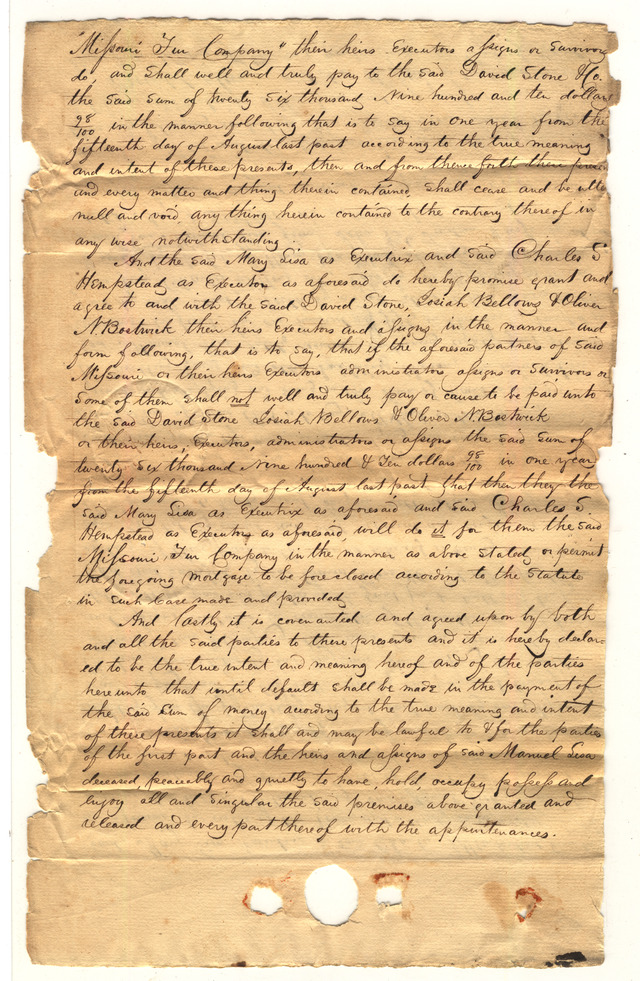 "Missouri Fur Company" their heirs Executors assigns or Survivors
do, and shall well and truly pay to the said David Stone & Co.
the said sum of twenty six thousand Nine hundred and ten dollars
98/100 in the manner following that is to say in one year from the
fifteenth day of August last past according to the true meaning
and intent of these presents, then and from thence forth these presen
and every matter and thing therein contained shall cease and be utte
null and void any thing herein contained to the contrary thereof in
any wise notwithstanding
And the said Mary Lisa as Executrix and said Charles S
Hempstead as Executor as aforesaid do hereby promise grant and
agree to and with the said David Stone, Josiah Bellows & Oliver
N Bostwick their heirs Executors and assigns in the manner and
form following, that is to say, that if the aforesaid partners of said
Missouri or their heirs Executors administrators assigns or Survivors or
some of them shall not well and truly pay or cause to be paid unto
the said David Stone Josiah Bellows & Oliver N. Bostwick
or their heirs, Executors, administrators or assigns the said sum of
twenty six thousand Nine hundred & Ten dollars 98/100 in one year
from the fifteenth day of August last past that then they the
said Mary Lisa as Executrix as aforesaid and said Charles S.
Hempstead as Executors as aforesaid, will do it for them the said
Missouri Fur Company in the manner as above stated, or permit
the foregoing mortgage to be foreclosed according to the Statute
in such case made and provided
And lastly it is covenanted and agreed upon by both
and all the said parties to these presents and it is hereby declar-
ed to be the true intent and meaning hereof and of the parties
here unto that until default shall be made in the payment of
the said sum of money according to the true meaning and intent
of these presents it shall and may be lawful to & for the parties
of the first part and the heirs and assigns of said Manuel Lisa
deceased, peaceably and quietly to have, hold, occupy possess and
enjoy all and singular the said premises above granted and
released and every part thereof with the appurtenances.